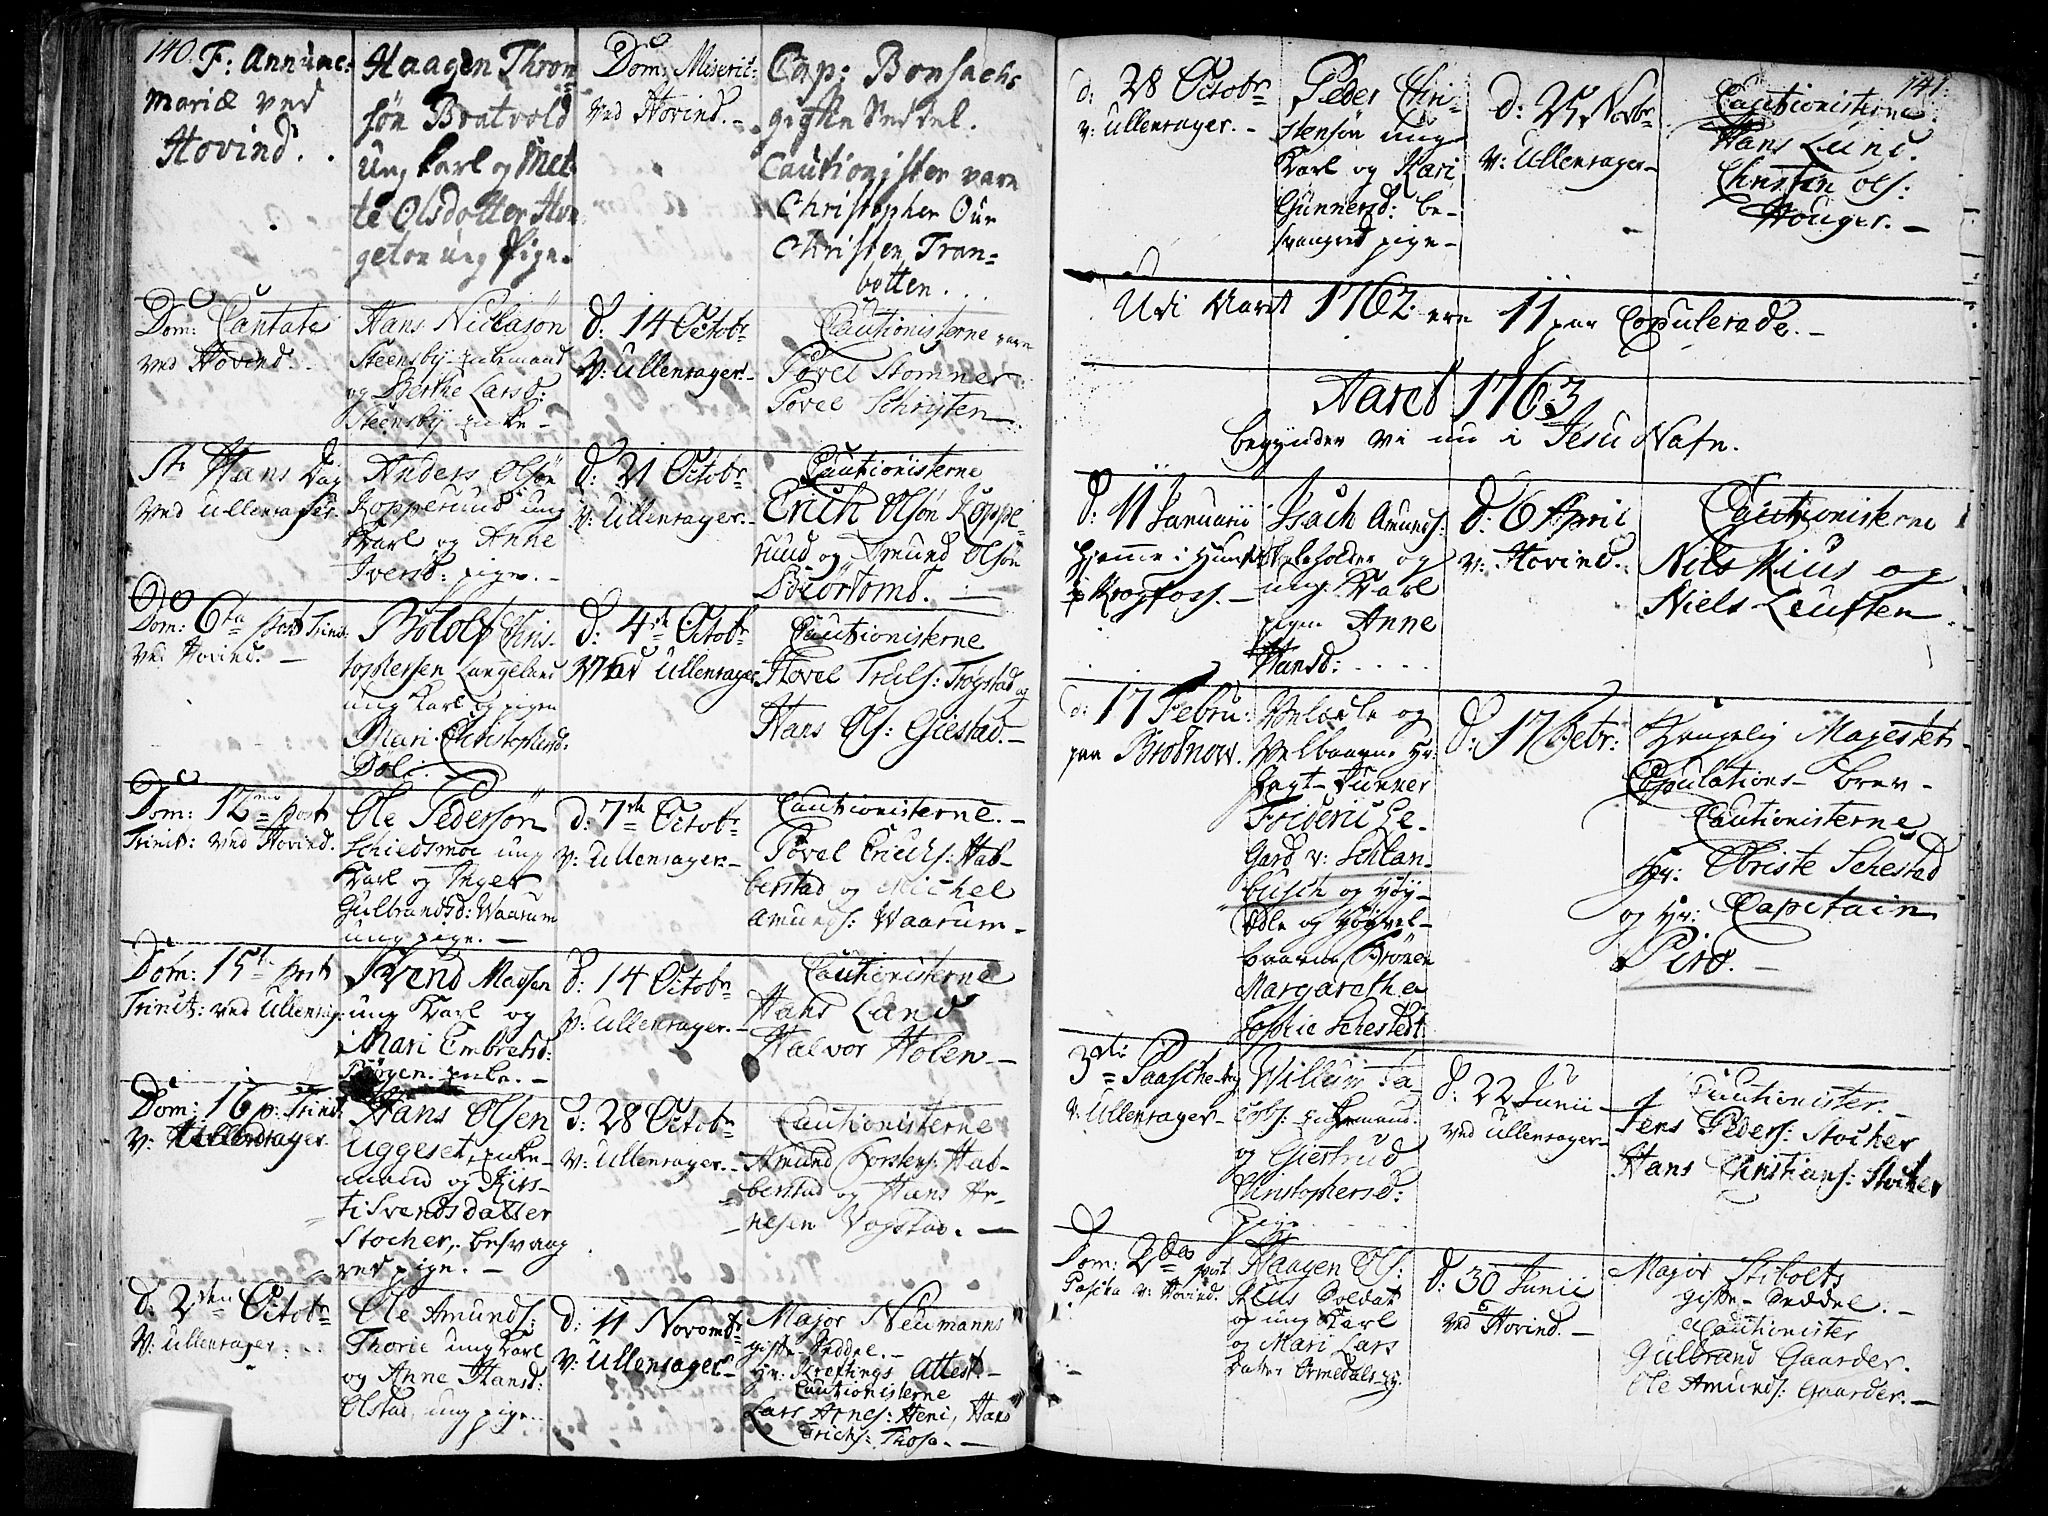 140. F: Annunc:
Mariæ ved
Hovind.
Haagen Thron
søn Bratvold
Ung karl og Met
te Olsdotter Hou
geton ung Pige.
Dom: Miseric:
ved Hovind.
Cap: Bonsachs
gifte Seddel.
Cautionister vare
Christopher Our
Christen Tran=
botten.
Dom: Cantate
ved Hovind.
Hans Niclasøn
Steensby Enkemand
og Berthe Larsd:
Steensby Enke
d: 14 Octobr
V: Ullensager.
Cautionisterne vare
Povel Stomner
Povel Schristen
St Hans Dag
ved Ullensager
Anders Olsøn
Kopperud ung
Karl og Anne
Iversd: pige.
d: 21 Octobr
V: Ullensager.
Cautionisterne
Erich Olsøn Koppe
ruud og Amund Olsøn
Biørtomt.
Dom: 6ta post Trin:
ved Hovind.
Botolf Chris
tophersen Langeland
ung Karl og pigen
Mari Christophersd:
Døli.
d: 4de Octobr
ved Ullensager
Cautionisterne
Hovel Truls: Thøgstad og
Hans Ols: Giestad.
Dom: 12 post
Trinit: ved Hovind.
Ole Pedersøn
Schiedsmoe ung
Karl og Inger
Gulbrandsd: Waarum
ung pige.
d: 7de Octobr
V: Ullensager.
Cautionisterne.
Povel Erichs: Hab-
berstad og Michel
Amunds: Waarum.
Dom: 15 post
Trinit: ved Ullensag:
Svend Madsen
ung Karl og
Mari Embretsd:
Børgen Enke.
d: 14 Octobr
V: Ullensager.
Cautionisterne
Hans Land
Halvor Holen.
Dom: 16 p: Trinit
V: Ullensager.
Hans Olsen
Uggeset, Enke-
mand og Kirs-
ti Svendsdatter
Stocher, besvang
red pige.
d: 28 Octobr
V: Ullensager.
Cautionisterne
Amund Torstens: Hab-
berstad og Hans Ar-
nesen Vogstad.
d: 2den Octobr
V: Ullensager
Ole Amunds:
Thorie ung Karl
og Anne Hansd:
Olstad, ung pige.
d: 11 Novembr
V: Ullensager
Major Neumanns
gifte Seddel.
Hr: Kreftings Attest.
Cautionisterne
Lars Arnes: Heni, Hans
Erichs: Thoso.
141.
d: 28 Octobr
v: Ullensager.
Peder Chri-
stensøn ung
Karl og Kari
Gunnersd: be-
svangred pige
d: 25 Novbr
V: Ullensager
Cautionisterne
Hans Lund.
Christen Ols:
Houger.
Udi Aaret 1762 ere 11 par Copulerede.
Aaret 1763
begynder vi nu i Jesu Nafn.
d: 11 Januarii
hjemme i Huuset
p Kragfoss.
Isach Amunds:
Tpleholder og
ung Karl
pigen Anne
Hansd:
d: 6 April
v: Hovind.
Cautionisterne
Nils Kius og
Niels Leuften
d: 17 Febru:
paa Brotnow.
Velædle og
Velbaarne Hr:
Jagt-Junker
Frideric Ge-
hard v: Schlan-
busch og Høy-
Ædle og Høyvel-
baarne Frøken
Margaretha
Sophie Schestedt
d: 17 Febr:
Kongelig Mayestets
Copulations-brev
Cautionisterne
Hr: Obriste Schestad
og Hr: Capitain
Piro.
3die Paasche-dag
V: Ullensager
Willum Ja
cobs: Enkemand.
og Giertrud
Christophersd:
pige
d: 22 Junii
ved Ullensager
Cautionister.
Jens Peders: Stocher
Hans Christians: Stocher
Dom: 2da post
Pascha v: Hovind.
Haagen Ols:
Kius Soldat
og ung Karl
og Mari Lars
Datter Ormedals
d: 30 Junii
ved Hovind.
Major Stibolts
gifte-Seddel.
Cautionister
Gulbrand Gaarder.
Ole Amunds: Gaarder.